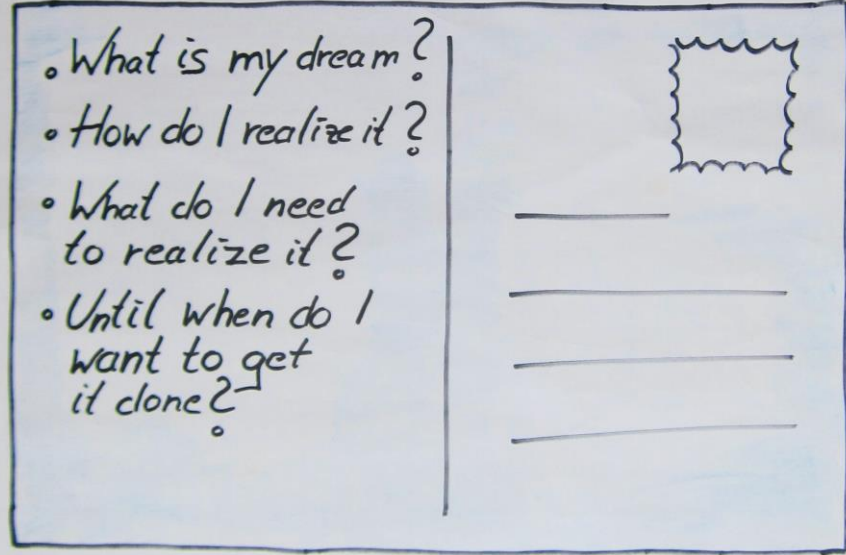 • What is my dream?
• How do I realize it?
• What do I need
to realize it?
• Until when do I
want to get
it done?